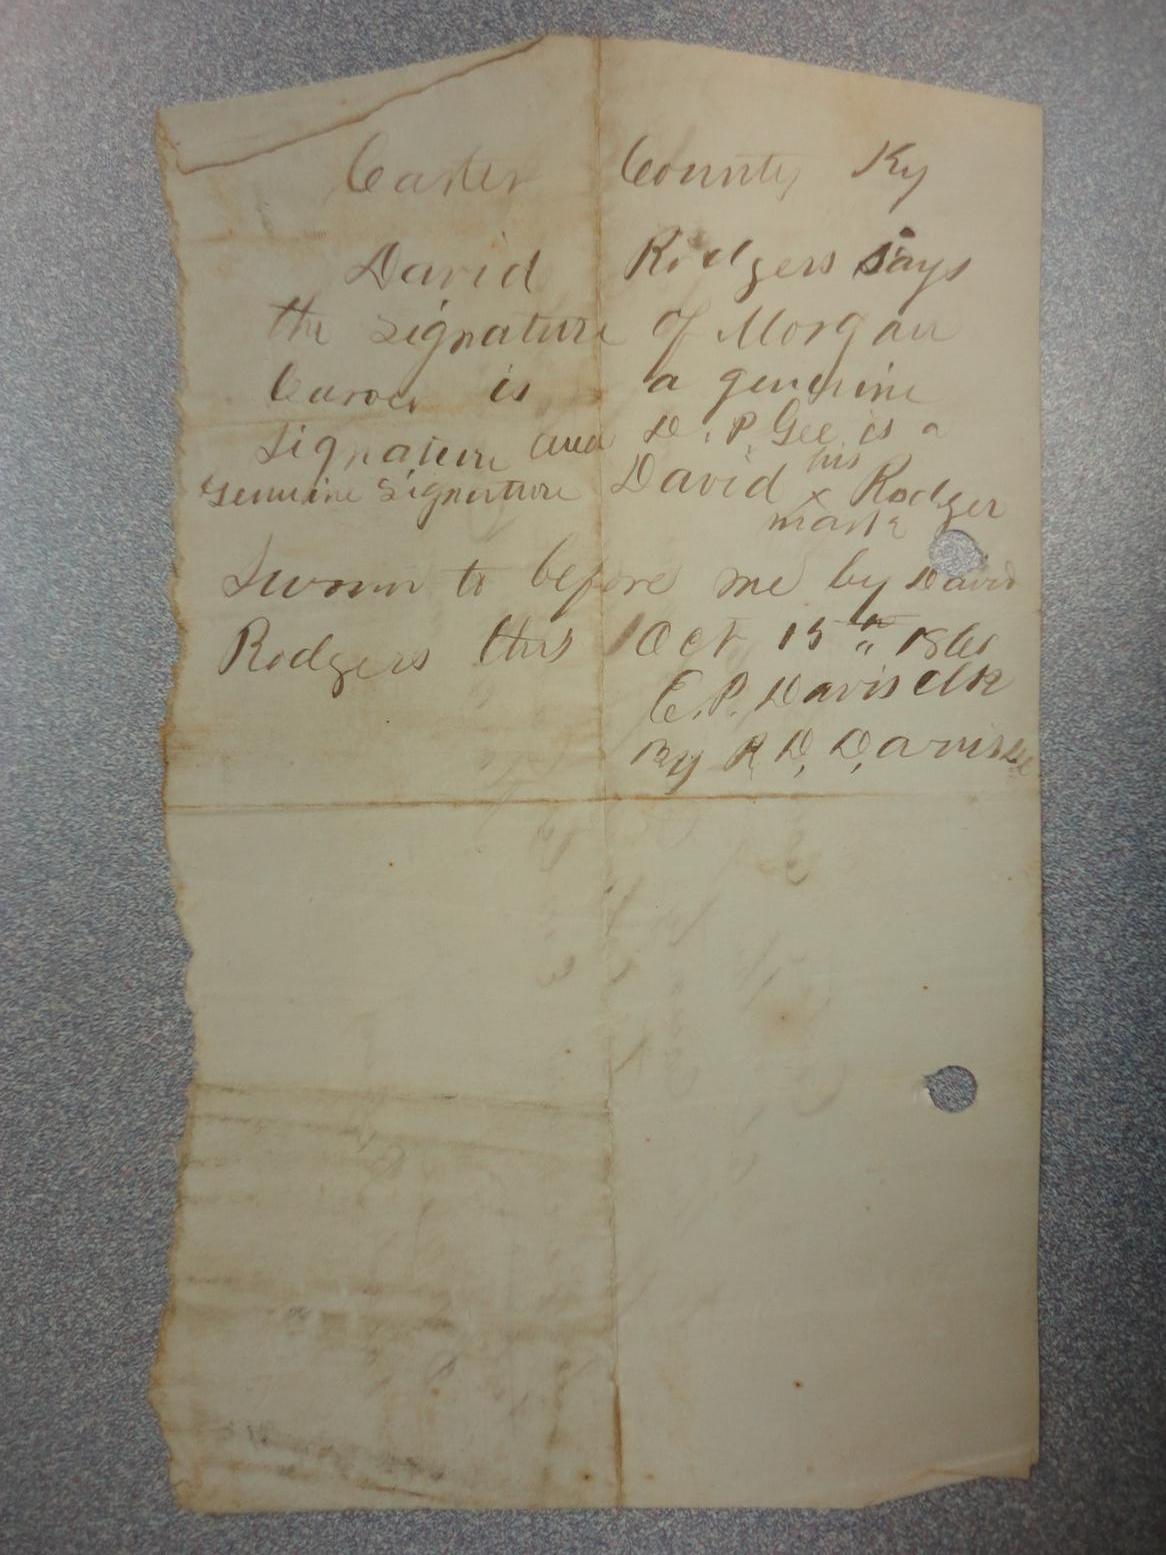 Carter County Ky
David Rodgers says
the signature of Morgan
Carver is a genuine
signature and D. P. Gee is a
genuine signature David his x mark Rodger
Sworn to before me by David
Rodgers this Oct 15th
E. P. Davis Clk
By R. D. Davis